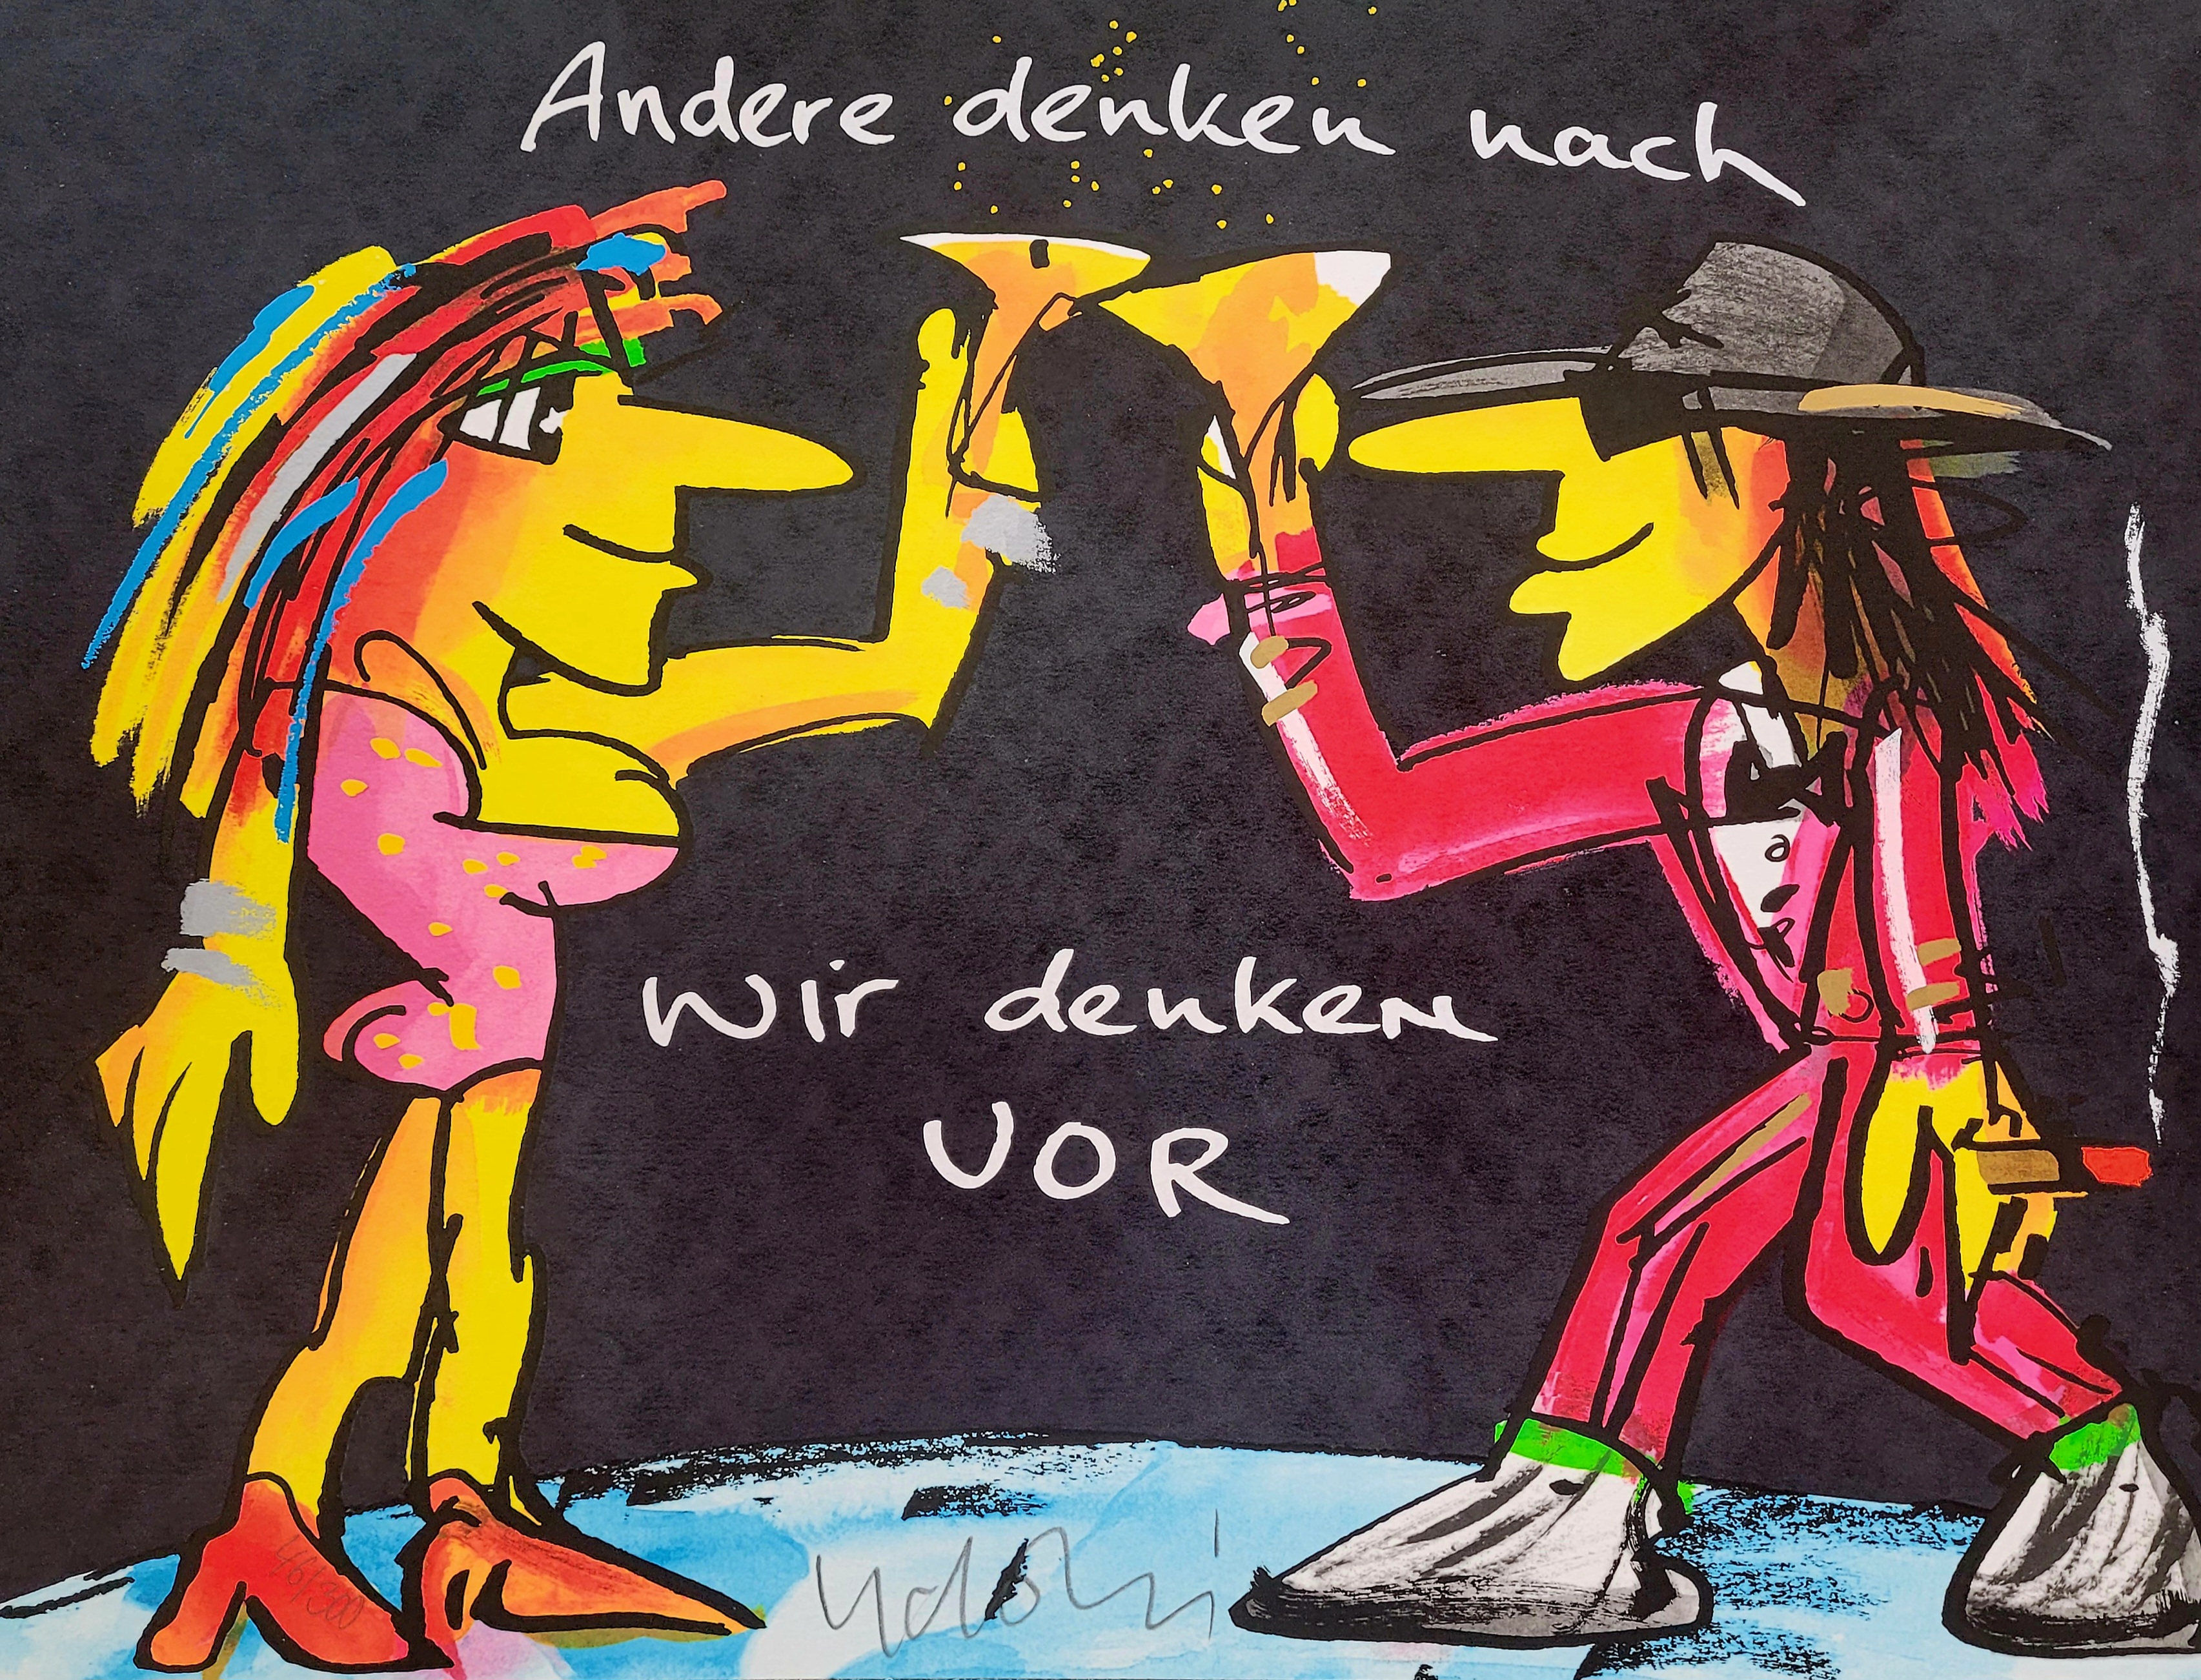 Andere denken nach
Wir denken
VOR
46/300
Udo Li